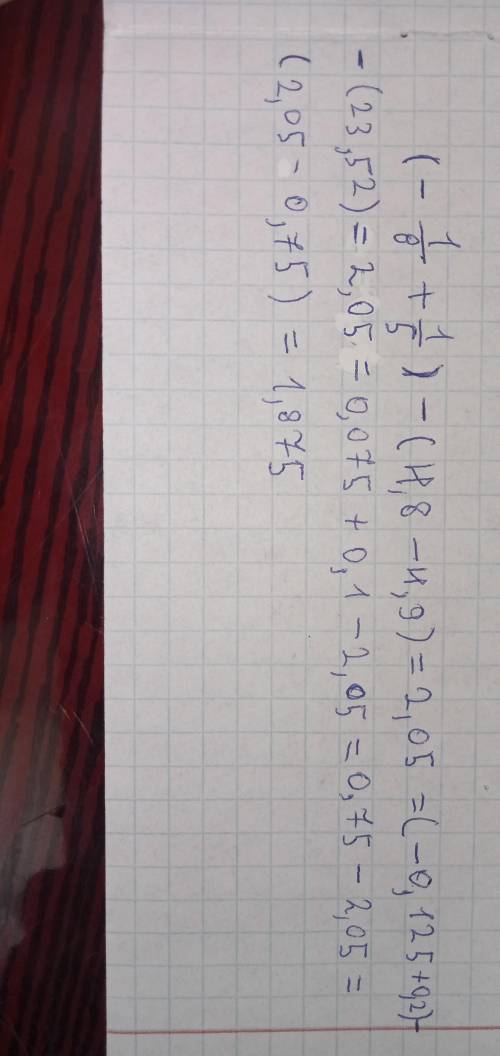 (- 1/8 + 1/5) - (4,8 - 4,9) = 2,05 = (-0,125+0,2)-
- (23,52) = 2,05 = 0,075 + 0,1 - 2,05 = 0,75 - 2,05 =
(2,05 - 0,75) = 1,875